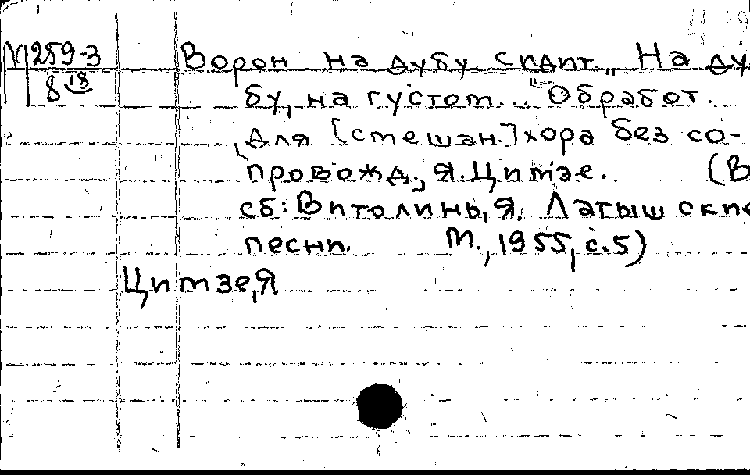 М 259-3 Ворон на дубу сидит. „На ду
8 18 бу, на густом..." Обработ.
для [смешан.] хора без со-
провожд. Я. Цимзе. (В
сб: Витолинь, Я. Латышские
песни. М., 1955, с.5)
Цимзе, Я